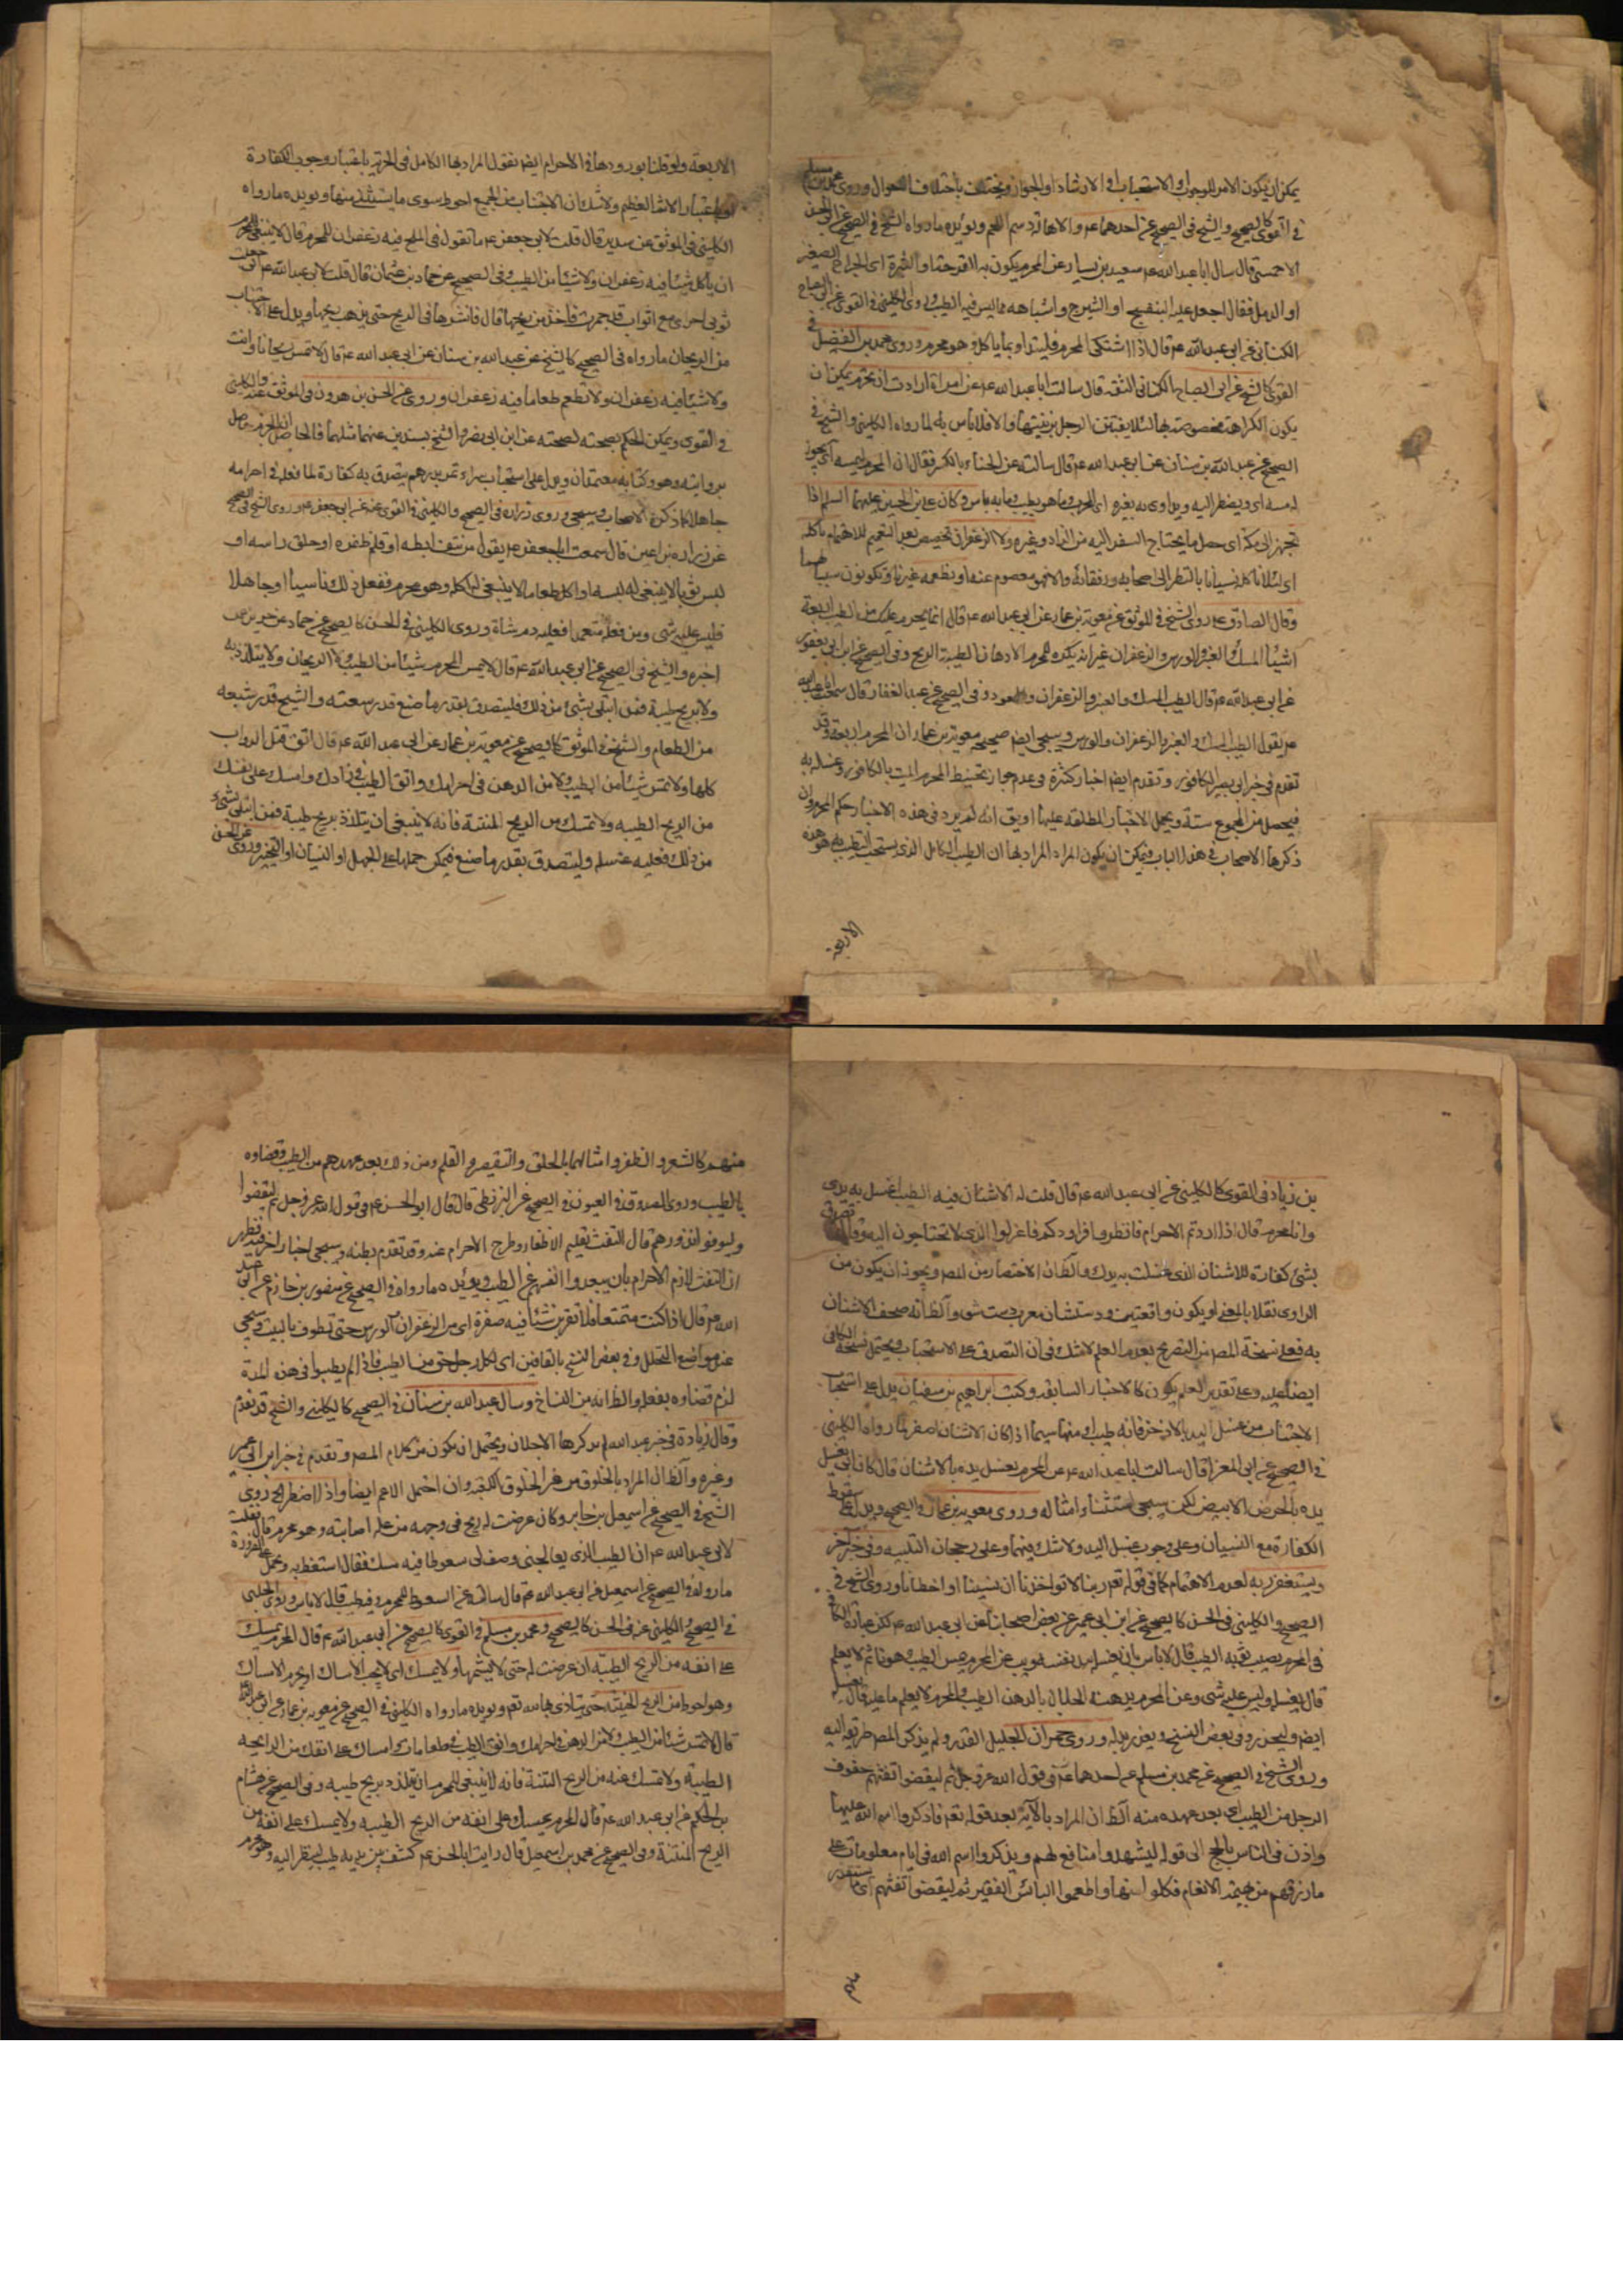 يمكن ان يكون الامر للوجوب او الاستحباب او الارشاد او الجواز ويختلف باختلاف الاحوال وروى محمد بن مسلم
في القوى كالصحيح والشيخ في الصحيح عن احدهما ع والاهالة دسم اللحم ويؤيده ما رواه الشيخ في الصحيح عن ابى الحسن
الاحمسى قال سال ابا عبد الله ع سعيد بن يسار عن المحرم يكون به القرحة او البثرة اى الجراح الصغير
او الدمل فقال اجعل عليه البنفسج او الشيرج واشباهه مما ليس فيه الطيب وروى الكلينى في القوى عن ابى الصباح
الكنانى عن ابى عبد الله ع قال اذا اشتكى المحرم فليتداو بما ياكل وهو محرم وروى محمد بن الفضيل في
القوى كالشيخ عن ابى الصباح الكنانى الثقة قال سالت ابا عبد الله ع عن امراة ارادت ان تحرم يمكن ان
يكون الكراهة مخصوصة بها لئلا يفتتن الرجل بزينتها والا فلا باس به لما رواه الكلينى والشيخ في
الصحيح عن عبد الله بن سنان عن ابى عبد الله ع قال سالته عن الحناء بالكسر فقال ان المحرم ليمسه اى يجوز
له مسه اى ويضطر اليه ويداوى به بعيره اى المحرم وما هو بطيب وما به باس وكان على بن الحسين عليهما السلم اذا
تجهز الى مكة اى حصل ما يحتاج السفر اليه من الزاد وغيره ولا الزعفران تخصيص بعد التعميم للاهتمام باكله
اى لئلا ناكله نسيانا بالنظر الى اصحابه ورفقائه والا فهو معصوم عنه او نطعمه غيرنا وتكونون سببا لهما
وقال الصادق ع روى الشيخ في الموثق عن معوية بن عمار عن ابى عبد الله ع قال انما يحرم عليك من الطيب اربعة
اشياء المسك والعنبر والورس والزعفران غير انه يكره للمحرم الادهان الطيبة الريح وفي الصحيح عن ابن ابى يعفور
عن ابى عبد الله ع قال الطيب المسك والعنبر والزعفران والعود وفي الصحيح عن عبد الغفار قال سمعت ابا عبد الله
ع يقول الطيب المسك والعنبر والزعفران والورس وسيجى ايضا صحيحة معوية بن عمار ان المحرم اربعة وقد
تقدم في خبر ابى بصير الكافور وتقدم ايضا اخبار كثيرة في عدم جواز تحنيط المحرم الميت بالكافور وغسله به
فيحصل من المجموع ستة ويحمل الاخبار المطلقة عليها او يق انه لم يرد في هذه الاخبار حكم المحرم وان
ذكرها الاصحاب في هذا الباب فيمكن ان يكون المراد المراد بها ان الطيب الكامل الذى يستحب التطيب به هو هذه
الاربعة
الاربعة ولو قلنا بورودها في الاحرام ايضا نقول المراد بها الكامل في الحرمة باعتبار وجوب الكفارة
او باعتبار الاثم العظيم ولا شك ان الاجتناب من الجميع احوط سوى ما يستثنى منها ويؤيده ما رواه
الكلينى في الموثق عن سدير قال قلت لابى جعفر ع ما تقول في الملح فيه زعفران للمحرم قال لا ينبغى للمحرم
ان ياكل شيئا فيه زعفران ولا شيئا من الطيب وفي الصحيح عن حماد بن عثمان قال قلت لابى عبد الله ع انى جعلت
ثوبى احرامى مع اثواب قد جمرت فاخذ من ريحها قال فانشرها في الريح حتى يذهب ريحها ويدل على الاجتناب
من الريحان ما رواه في الصحيح كالشيخ عن عبد الله بن سنان عن ابى عبد الله ع قال لا تمس ريحانا وانت محرم
ولا شيئا فيه زعفران ولا تطعم طعاما فيه زعفران وروى عن الحسن بن هرون في الموثق عنه والكلينى
في القوى ويمكن الحكم بصحته لصحته عن ابن ابى نصر والشيخ بسندين عنهما مثلهما فالحاصل
بروايته وهو وكتابه معتمدان ويدل على استحباب شراء تمر بدرهم يتصدق به كفارة لما فعله في احرامه
جاهلا كما ذكره الاصحاب وسيجى وروى زرارة في الصحيح والكلينى في القوى عنه عن ابى جعفر ع وروى الشيخ في الصحيح
عن زرارة بن اعين قال سمعت ابا جعفر ع يقول من نتف ابطه او قلم ظفره او حلق راسه او
لبس ثوبا لا ينبغى له لبسه او اكل طعاما لا ينبغى له اكله وهو محرم ففعل ذلك ناسيا او جاهلا
فليس عليه شى ومن فعله متعمدا فعليه دم شاة وروى الكلينى في الحسن كالصحيح عن حماد عن حريز عمن
اخبره والشيخ في الصحيح عن ابى عبد الله ع قال لا يمس المحرم شيئا من الطيب ولا الريحان ولا يتلذذ به
ولا بريح طيبة فمن ابتلى بشئ من ذلك فليتصدق بقدر ما صنع قدر سعته والشيخ قدر شبعه
من الطعام والشيخ في الموثق كالصحيح عن معوية بن عمار عن ابى عبد الله ع قال اتق قتل الدواب
كلها ولا تمس شيئا من الطيب ولا من الدهن في احرامك واتق الطيب في زادك وامسك على نفسك
من الريح الطيبه ولا تمسك من الريح المنتنة فانه لا ينبغى ان يتلذذ بريح طيبة فمن ابتلى بشئ
من ذلك فعليه غسله وليتصدق بقدر ما صنع فيمكن حملها على الجهل او النسيان او التخيير وروى عن الحسن
بن زياد في القوى كالكلينى عن ابى عبد الله ع قال قلت له الاشنان فيه الطيب اغسل به يدى
وانا محرم قال اذا اردتم الاحرام فانظروا مزاودكم فاعزلوا الذى لا تحتاجون اليه وقال تصدق
بشئ كفارة للاشنان الذى غسلت به يدك والظان الاختصار من المصـ ويجوز ان يكون من
الراوى نقلا بالمعنى او يكون واقعتين ودستشان معرب دست شو والظانه صحف الاشنان
به فعلى نسخة المصـ من التصريح بعدم العلم لا شك في ان التصدق على الاستحباب ويحتمل نسخة الكافى
ايضا عليه وعلى تقدير العلم يكون كالاخبار السابقة وكتب ابراهيم بن سفيان يدل على استحباب
الاجتناب من غسل اليد بالاذخر فانه طيب او منها سيما اذا كان الاشنان اصفر لما رواه الكلينى
في الصحيح عن ابى المغرا قال سالت ابا عبد الله ع عن المحرم يغسل يده بالاشنان قال كان ابى يغسل
يده بالحرض الابيض لكن سيجى استثناء امثاله وروى معوية بن عمار في الصحيح ويدل على سقوط
الكفارة مع النسيان وعلى وجوب غسل اليد ولا شك فيهما وعلى رجحان التلبيه وفي خبر اخر
ويستغفر ربه لعدم الاهتمام كما في قوله تعم ربنا لا تواخذنا ان نسينا او اخطانا وروى الشيخ في
الصحيح والكلينى في الحسن كالصحيح عن ابن ابى عمير عن بعض اصحابنا عن ابى عبد الله ع لكن عبارة الكافى
في المحرم يصيب ثوبه الطيب قال لا باس بان يغسله بيد نفسه
قال يغسله وليس عليه شى وعن المحرم يدهنه الحلال بالدهن الطيب والمحرم لا يعلم ما عليه قال يغسله
ايضا وليحذر وفي بعض النسخ ويعزر بدله وروى حمران الجليل القدر ولم يذكر المصـ طريقه اليه
وروى الشيخ في الصحيح عن محمد بن مسلم عن احدهما ع في قول الله عز وجل ثم ليقضوا تفثهم حفوف
الرجل من الطيب اى بعد عهده منه الظان المراد بالآية بعد قوله تعم فاذكروا اسم الله عليها
واذن في الناس بالحج الى قوله ليشهدوا منافع لهم ويذكروا اسم الله في ايام معلومات على
ما رزقهم من بهيمة الانعام فكلوا منها واطعموا البائس الفقير ثم ليقضوا تفثهم اى ما يستقذر
منهم كالشعر والظفر وامثالهما بالحلق والتقصير والقلم ومن ذلك بعد عهدهم من الطيب وقضاوه
بالطيب وروى الصدوق في العيون في الصحيح عن البزنطى قال قال ابو الحسن ع في قول الله عز وجل ثم ليقضوا
وليوفوا نذورهم قال التفث تقليم الاظفار وطرح الاحرام عنه وقد تقدم بطنه وسيجى اخبار اخر فيظهر
ان التفث لازم الاحرام بان يبعدوا انفسهم عن الطيب ويؤيده ما رواه في الصحيح عن منصور بن حازم عن ابى عبد
الله ع قال اذا كنت متمتعا فلا تقربن شيئا فيه صفرة اى من الزعفران والورس حتى تطوف بالبيت وسيجى
عند مواضع التحلل وفي بعض النسخ بالقافين اى لكل رجل حق من الطيب فاذا لم يطيبوا في هذه المدة
لزم قضاوه بفعله والظانه من النساخ وسال عبد الله بن سنان في الصحيح كالكلينى والشيخ قد تقدم
وقال زيادة في خبر عبد الله لم يذكرها الاجلان ويحتمل ان يكون من كلام المصـ وتقدم في خبر ابن ابى عمير
وغيره والظان المراد بالخلوق من غير الخلوق الكعبة وان احتمل الاعم ايضا واذا اضطر الخ روى
الشيخ في الصحيح عن اسمعيل بن جابر وكان عرضت له ريح في وجهه من علة اصابته وهو محرم قال فقلت
لابى عبد الله ع ان الطبيب الذى يعالجنى وصف لى سعوطا فيه مسك فقال استعط به ويحمل على الضرورة
ما رواه في الصحيح عن اسمعيل عن ابى عبد الله ع قال سالته عن السعوط للمحرم وفيه طيب قال لا باس وروى الحلبى
في الصحيح والكلينى عنه في الحسن كالصحيح ومحمد بن مسلم في القوى كالصحيح عن ابى عبد الله ع قال المحرم يمسك
على انفه من الريح الطيبه ان عرضت له حتى لا يشمها ولا يمسك اى لا يجب الامساك او يحرم الامساك
وهو احوط من الريح الخبيثة حتى يتاذى بها لله تعم ويؤيده ما رواه الكلينى في الصحيح عن معوية بن عمار عن ابى عبد الله
قال لا تمس شيئا من الطيب ولا من الدهن في احرامك واتق الطيب في طعامك وامسك على انفك من الرايحه
الطيبة ولا تمسك عنه من الريح المنتنة فانه لا ينبغى للمحرم ان يتلذذ بريح طيبه وفي الصحيح عن هشام
بن الحكم عن ابى عبد الله ع قال المحرم يمسك على انفه من الريح الطيبه ولا يمسك على انفه من
الريح المنتنة وفي الصحيح عن محمد بن اسمعيل قال رايت ابا الحسن ع كشف بين يديه طيب لينظر اليه وهو محرم